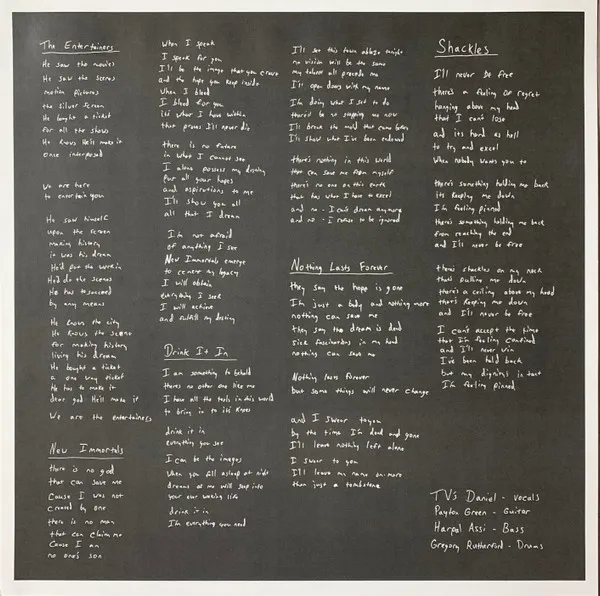 The Entertainers
He saw the movies
He saw the scenes
motion pictures
the silver screen
He bought a ticket
for all the shows
He knows He'll make it
once interposed
We are here
to entertain you
He saw himself
upon the screen
making history
it was his dream
He'd put the work in
He'd do the scenes
He has to succeed
by any means
He knows the city
He knows the scene
for making history
living his dream
He bought a ticket
a one way ticket
He has to make it
dear god He'll make it
We are the entertainers
New Immortals
there is no god
that can save me
Cause I was not
created by one
there is no man
that can claim me
Cause I am
no one's son
When I speak
I speak for you
I'll be the image that you crave
and the hope you keep inside
When I bleed
I bleed for you
its what I have within
that proves I'll never die
there is no future
in what I cannot see
I alone possess my destiny
Put all your hopes
and aspirations to me
I'll show you all
all that I dream
I'm not afraid
of anything I see
New Immortals emerge
to cement my legacy
I will obtain
everything I seek
I will achieve
and fulfill my destiny
Drink It In
I am something to behold
theres no other one like me
I have all the tools in this world
to bring to its knees
drink it in
everything you see
I can be the images
When you fall asleep at night
dreams of me will seep into
your ever waking life
drink it in
I'm everything you need
I'll set this town ablaze tonight
no vision will be the same
my talents all precede me
I'll open doors with my name
I'm doing what I set to do
there'd be no stopping me now
I'll break the mold that came before
I'll show what I've been endowed
there's nothing in this world
that can save me from myself
there's no one on this earth
that has what I have to excel
and no - I can't dream anymore
and no - I refuse to be ignored
Nothing Lasts Forever
they say the hope is gone
I'm just a body and nothing more
nothing can save me
they say the dream is dead
sick fascinations in my head
nothing can save me
Nothing lasts forever
but some things will never change
and I swear to you
by the time I'm dead and gone
I'll leave nothing left alone
I swear to you
I'll leave my name on more
than just a tombstone
Shackles
I'll never be free
there's a feeling of regret
hanging above my head
that I can't lose
and its hard as hell
to try and excel
When nobody wants you to
there's something holding me back
its keeping me down
I'm feeling pinned
there's something holding me back
from reaching the end
and I'll never be free
there's shackles on my neck
that's pulling me down
there's a ceiling above my head
that's keeping me down
and I'll never be free
I can't accept the time
that I'm feeling confined
and I'll never win
I've been told back
but my dignity's in tact
I'm feeling pinned
TV's Daniel - vocals
Payton Green - Guitar
Harpal Assi - Bass
Gregory Rutherford - Drums